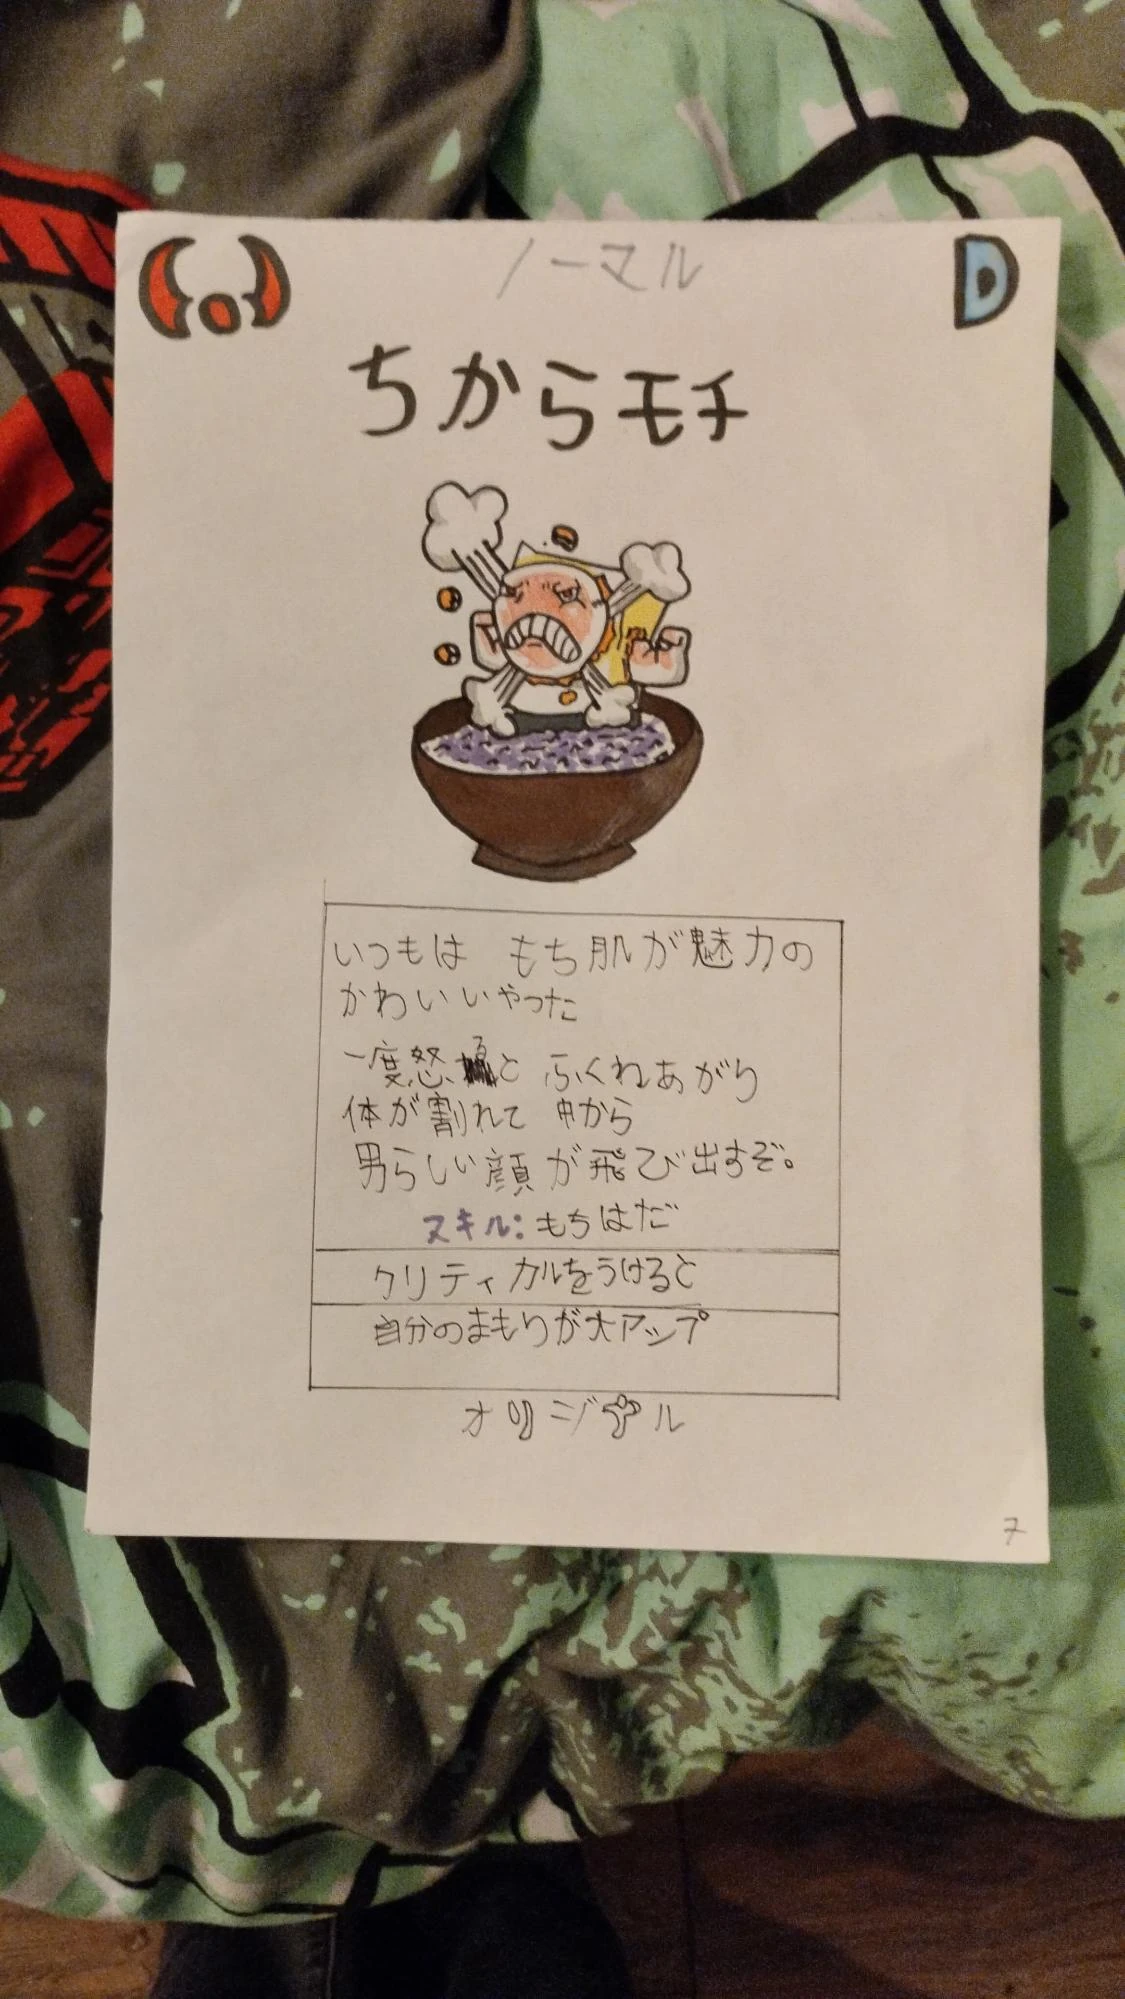 ノーマル
D
ちからモチ
いつもは もち肌が魅力の
かわいいやつた
一度怒ると ふくれあがり
体が割れて 中から
男らしい顔が飛び出すぞ。
スキル:もちはだ
クリティカルをうけると
自分のまもりが大アップ
オリジナル
7